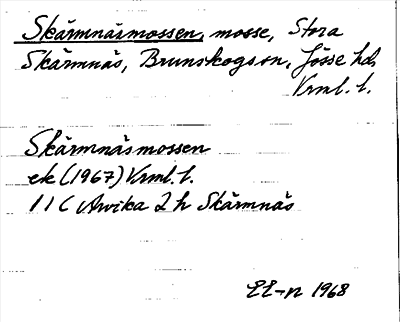 Skärmnäsmossen, mosse, Stora
Skärmnäs, Brunskogs sn, Jösse hd,
Vrml. l.
Skärmnäsmossen
ek (1967) Vrml. l.
11 C Arvika 2 h Skärmnäs
EE-n 1968